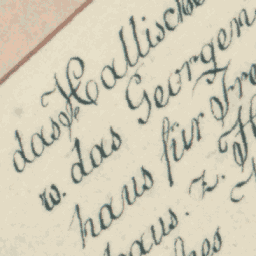 das Hallische
w. das Georgen
haus für Fre
haus. z. H
hes